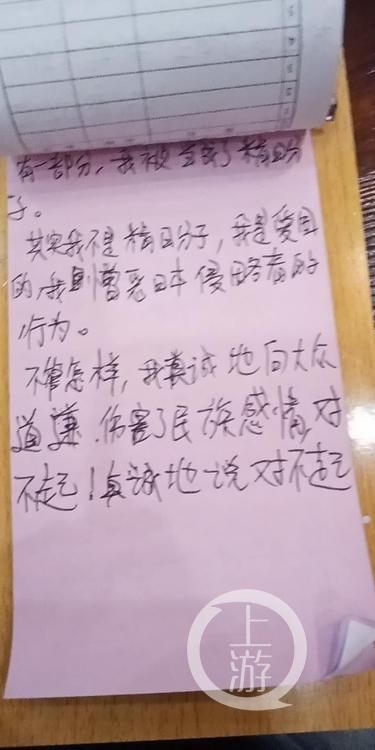 有一部分，我被当成了精日分
子。
其实我不是精日分子，我是爱国
的，我则憎恶日本侵略者的
行为。
不管怎样，我真诚地向大众
道歉，伤害了民族感情，对
不起！真诚地说对不起
上游